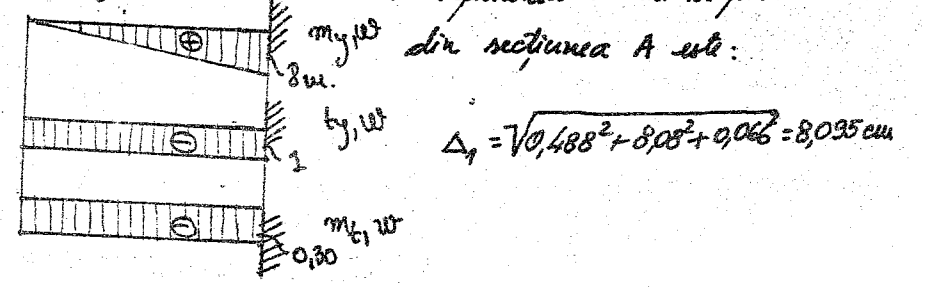 m_y, w
din secțiunea A este:
3 m.
t_y, w
Δ₁ = √0,488² + 8,08² + 0,066² = 8,095 cm
1
m_t, w
0,30